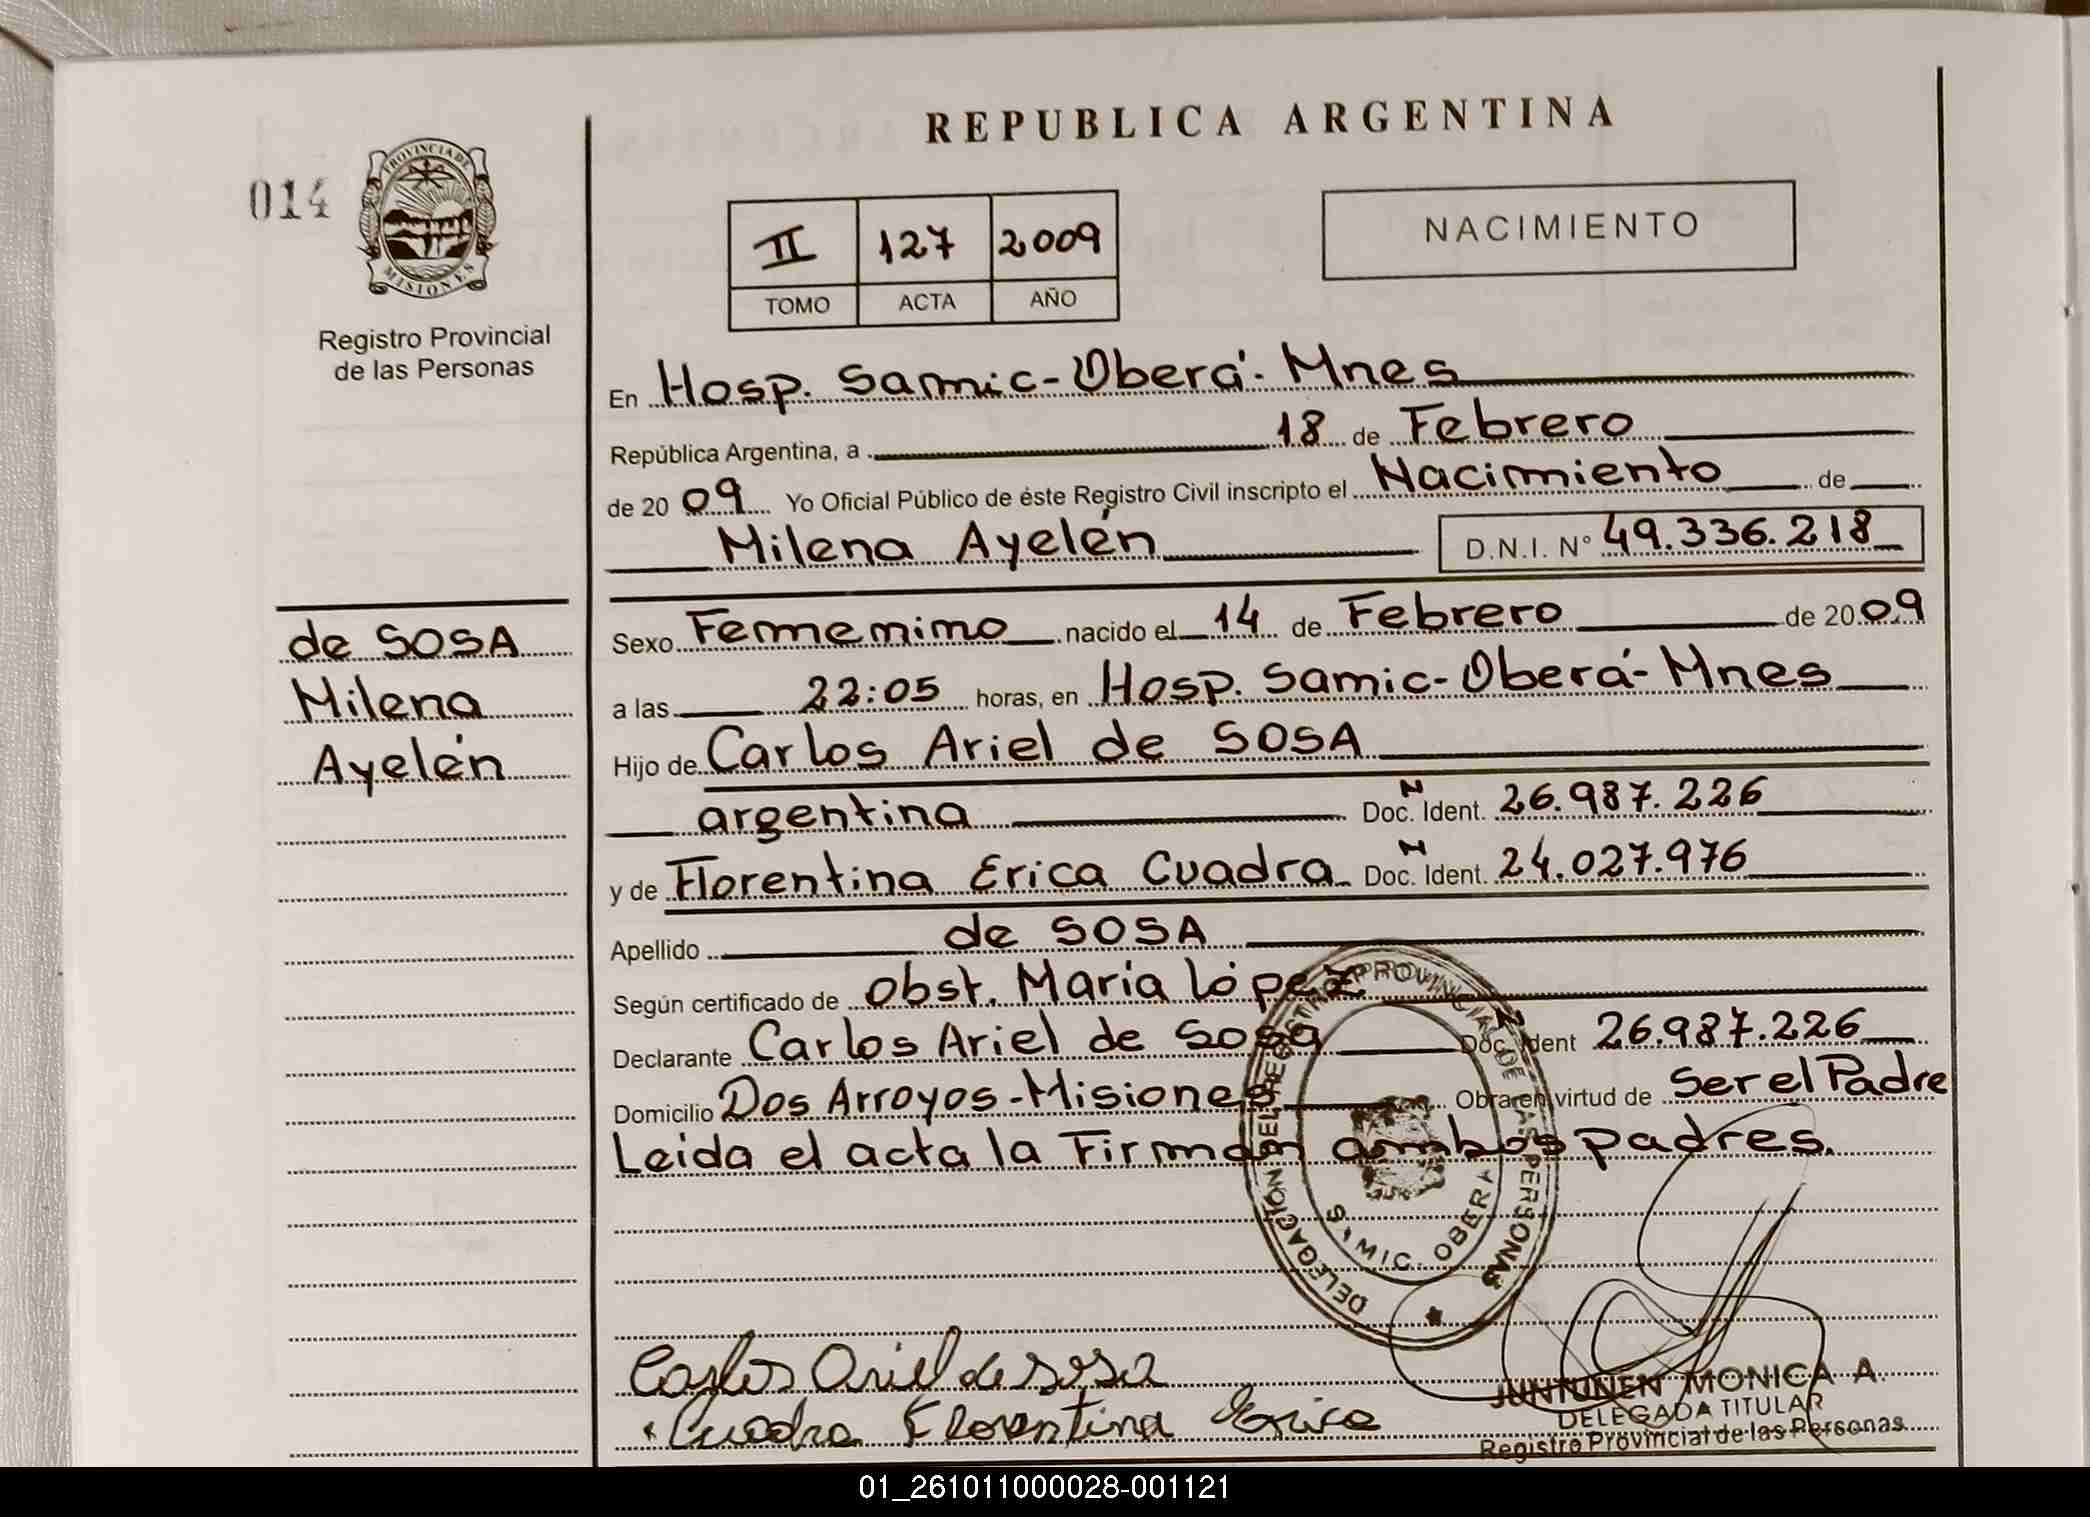 REPUBLICA ARGENTINA
014
PROVINCIA DE
MISIONES
Registro Provincial
de las Personas
II 127 2009
TOMO ACTA AÑO
NACIMIENTO
En Hosp. Samic-Oberá-Mnes
República Argentina, a 18 de Febrero
de 2009 Yo Oficial Público de éste Registro Civil inscripto el Nacimiento de
Milena Ayelén D.N.I. N° 49.336.218
de SOSA
Milena
Ayelén
Sexo Femenino nacido el 14 de Febrero de 2009
a las 22:05 horas, en Hosp. Samic-Oberá-Mnes
Hijo de Carlos Ariel de SOSA
argentina Doc. N Ident. 26.987.226
y de Florentina Erica Cuadra Doc. N Ident. 24.027.976
Apellido de SOSA
Según certificado de obst. María López
Declarante Carlos Ariel de Sosa Doc. Ident 26.987.226
Domicilio Dos Arroyos-Misiones Obra en virtud de Ser el Padre
Leida el acta la Firman ambos padres.
DELEGACIÓN DEL REGISTRO PROVINCIAL DE LAS PERSONAS
SAMIC. OBERA
Carlos Ariel de Sosa
Cuadra Florentina Erica
JUNTUNEN MONICA A.
DELEGADA TITULAR
Registro Provincial de las Personas
01_261011000028-001121